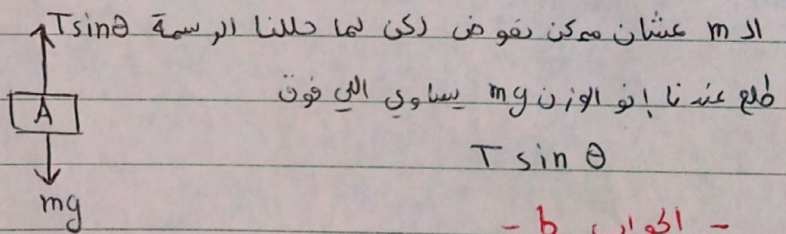 الـ m عشان ممكن نعوض لكن لما حللنا الرسمة Tsinθ
طلع عندنا إنو الوزن mg يساوي اللي فوق
A
T sin θ
mg
- الجواب b -